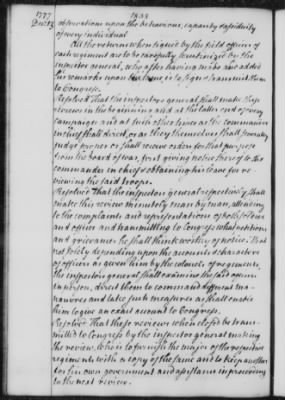 1777 1022
Decr 13 observations upon the behaviour, capacity & assiduity
of every individual
All the returns when signed by the field officers of
each regiment are to be carefully examined by the
inspector general, who after having made and added
his remarks upon is to sign & transmit them
to Congress.
Resolved That the inspectors general shall make these
reviews in the beginning and at the latter end of every
campaign and at such other times as the commander
in chief shall direct, or as they themselves shall
judge proper or shall receive orders for that purpose
from the board of war, first giving notice thereof to the
commander in chief & obtaining his leave for re-
viewing the said troops.
Resolved That the inspectors general respectively shall
make this review minutely man by man, attending
to the complaints and representations of both soldier
and officer and transmitting to Congress what petitions
and grievances he shall think worthy of notice. That
not solely depending upon the accounts & characters
of officers as given him by the colonels of regiments,
the inspectors general shall examine the said officers
in person, direct them to command different ma-
nœuvres and take such measures as shall enable
him to give an exact account to Congress.
Resolved That these reviews when closed be trans-
mitted to Congress by the inspector general making
the review, who is to furnish the major of the respective
regiments with a copy of the same and to keep another
for his own government and assistance in proceeding
to the next review.